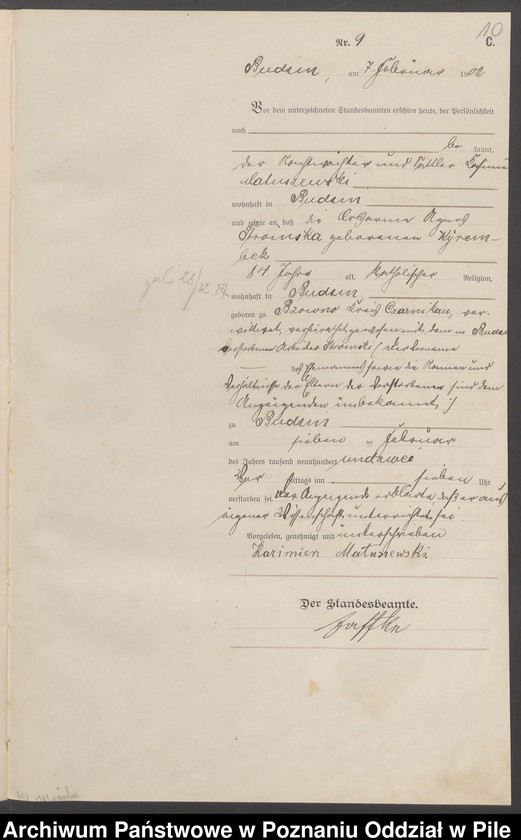 10
Nr. 9
C.
Budsin, am 7 Februar 1902
Vor dem unterzeichneten Standesbeamten erschien heute, der Persönlichkeit
nach
be kannt,
der Nachtwächter und Sattler
Matuszewski
wohnhaft in Budsin
und zeigte an, daß die Ortsarme Agnes
Strömska geborenen Wyrem-
bek
84 Jahre alt, katholischer Religion,
wohnhaft in Budsin
geboren zu Kreis Czarnikau, ver-
wittwet, verheirathet gewesen mit dem in Budsin
verstorbenen Arbeiter Stromski (der Vorname
des Ehemannes sowie die Namen und
Verhältnisse der Eltern der Verstorbenen sind dem
Anzeigenden unbekannt)
zu Budsin
am sieben ten Februar
des Jahres tausend neunhundert und zwei
Vor mittags um sieben Uhr
verstorben sei. Der Anzeigende erklärte daß er aus
eigener Wissenschaft unterrichtet sei
Vorgelesen, genehmigt und unterschrieben
Kazimierz Matuszewski
Der Standesbeamte.
Archiwum Państwowe w Poznaniu Oddział w Pile